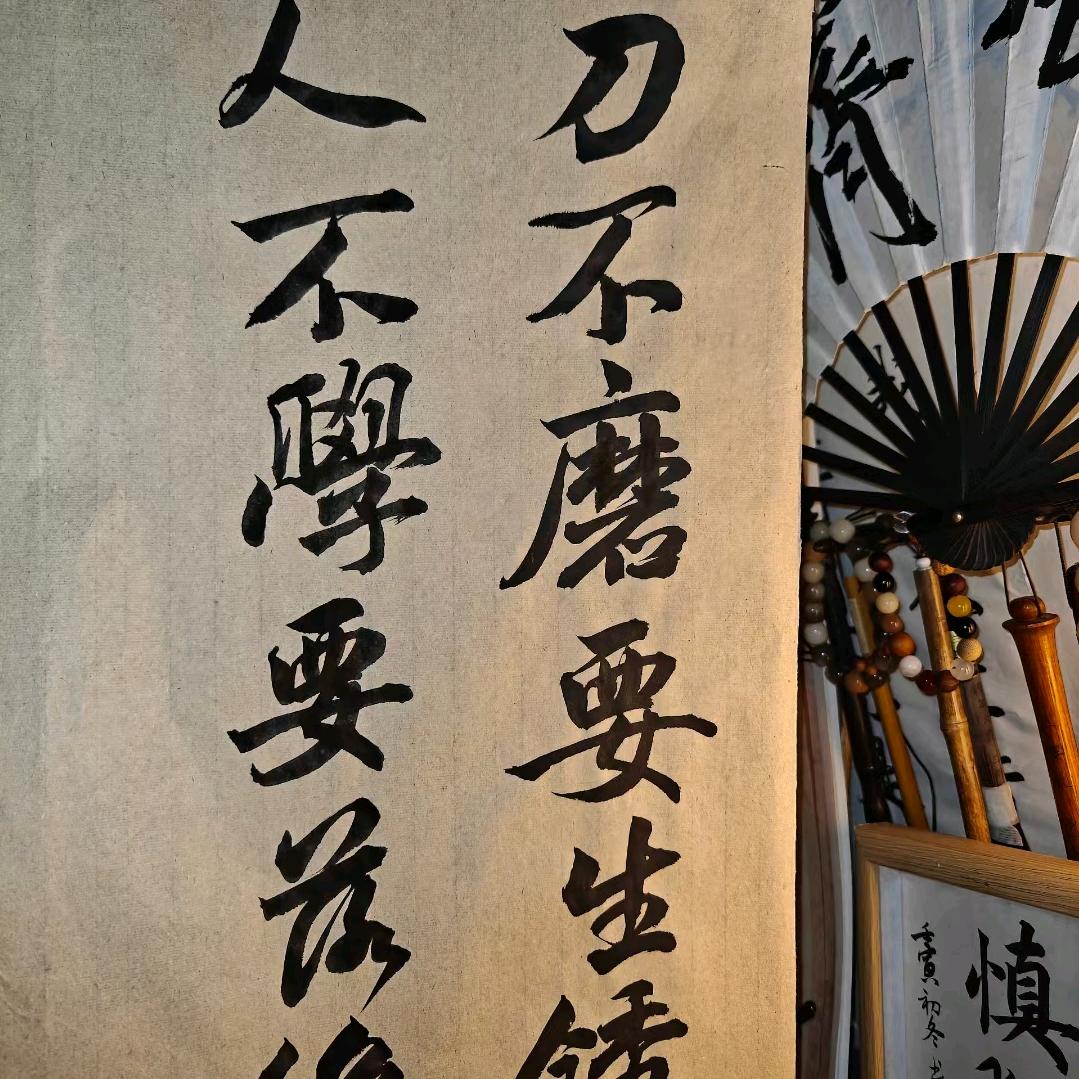 刀不磨要生銹
人不學要落後
慎
壬寅初冬